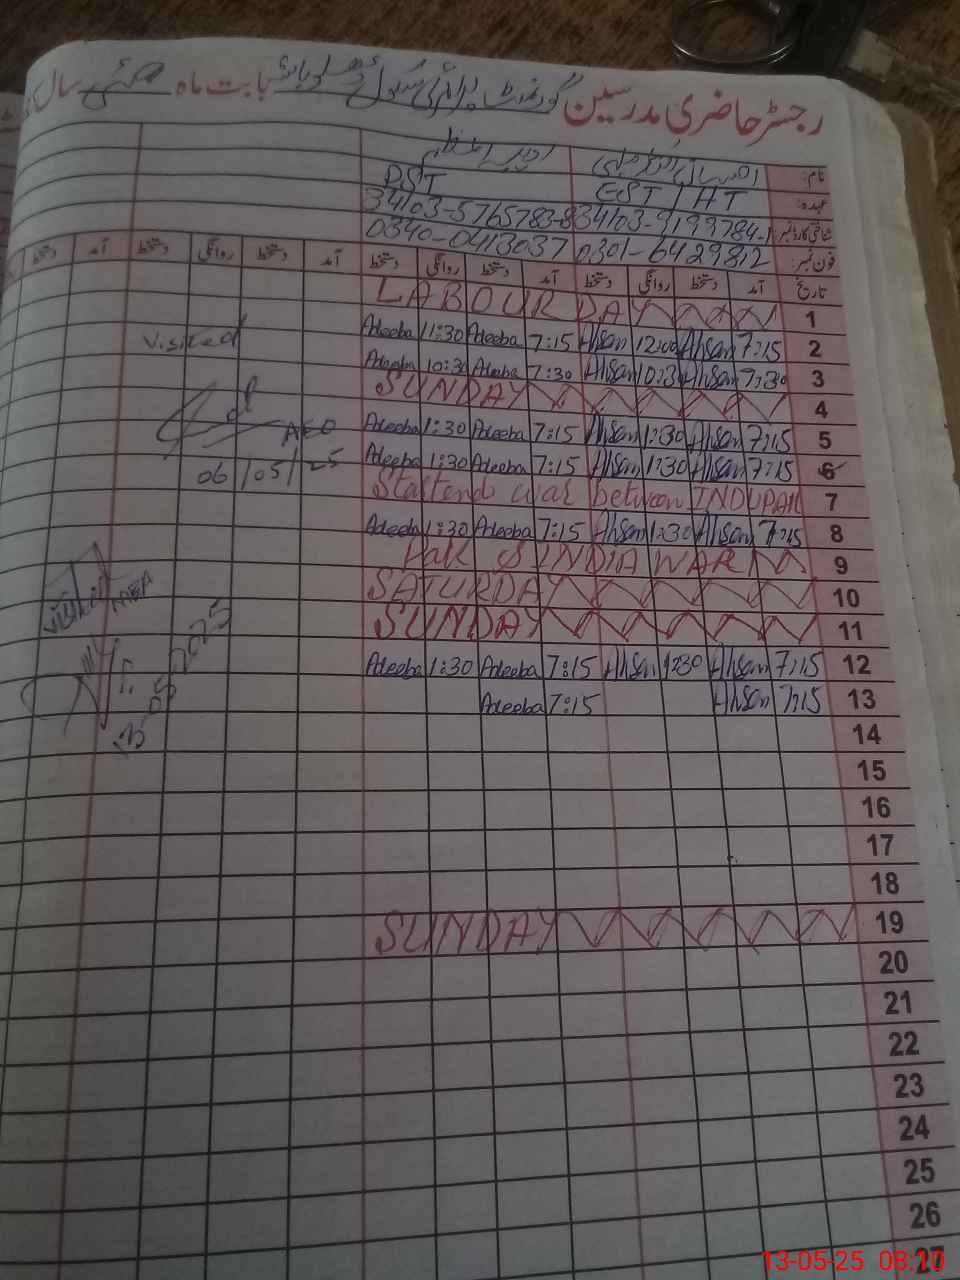 رجسٹر حاضری مدرسین گورنمنٹ پرائمری سکول بابت ماہ مئی سال
نام:
عہدہ: EST / HT PST
شناختی کارڈ نمبر: 34103-5765783-8
فون نمبر: 0301-6429812 0340-0413037
تاریخ آمد دستخط روانگی دستخط آمد دستخط روانگی دستخط آمد دستخط روانگی دستخط آمد دستخط
1 LABOUR DAY
2 7:15 Ahsan 12:00 Ahsan 7:15 Adeeba 11:30 Adeeba
Visited
3 7:30 Ahsan 10:30 Ahsan 7:30 Adeeba 10:30 Adeeba
4 SUNDAY
5 7:15 Ahsan 1:30 Ahsan 7:15 Adeeba 1:30 Adeeba
AEO
6 7:15 Ahsan 1:30 Ahsan 7:15 Adeeba 1:30 Adeeba
06/05/25
7 war between IND U PAK
8 7:15 Ahsan 1:30 Ahsan 7:15 Adeeba 1:30 Adeeba
9 Pak & INDIA WAR
10 SATURDAY
11 SUNDAY
Visited MEA
12 7:15 Ahsan 1:30 Ahsan 7:15 Adeeba 1:30 Adeeba
13 7:15 Ahsan 7:15 Adeeba
13.05.2025
14
15
16
17
18
19 SUNDAY
20
21
22
23
24
25
26
27
13-05-25 08:10